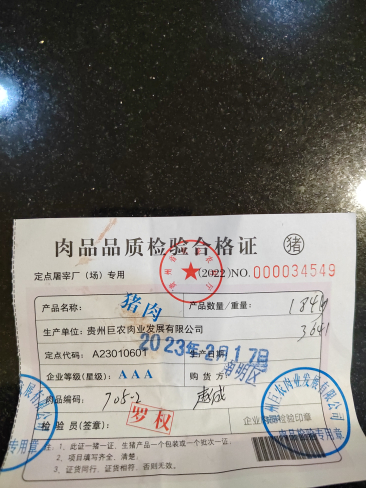 肉品品质检验合格证 猪
定点屠宰厂（场）专用 (2022) NO. 000034549
产品名称： 猪肉 产品数量/重量： 184kg
生产单位：贵州巨农肉业发展有限公司 3641
定点代码： A23010601 生产日期
2023年2月17日
企业等级(星级)： AAA 购货方： 南明区
肉品编码： 705-2
检验员(签章)： 罗权 企业肉品检验印章
注：1、此证一猪一证，生猪产品一个包装或一个批次一证。
2、项目填写齐全，清楚。
3、证货同行，证货相符，否则无效。
贵州巨农肉业发展有限公司
药品检验专用章
发展有限公司
专用章